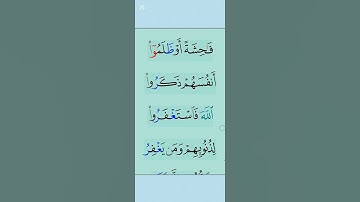 فَـٰحِشَةً أَوْ ظَلَمُوٓا۟
أَنفُسَهُمْ ذَكَرُوا۟
ٱللَّهَ فَٱسْتَغْفَرُوا۟
لِذُنُوبِهِمْ وَمَن يَغْفِرُ